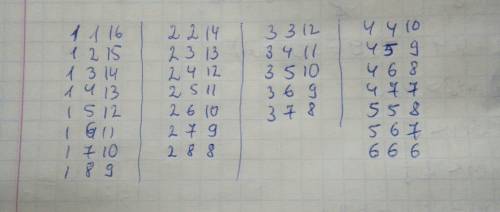 1 1 16
1 2 15
1 3 14
1 4 13
1 5 12
1 6 11
1 7 10
1 8 9
2 2 14
2 3 13
2 4 12
2 5 11
2 6 10
2 7 9
2 8 8
3 3 12
3 4 11
3 5 10
3 6 9
3 7 8
4 4 10
4 5 9
4 6 8
4 7 7
5 5 8
5 6 7
6 6 6